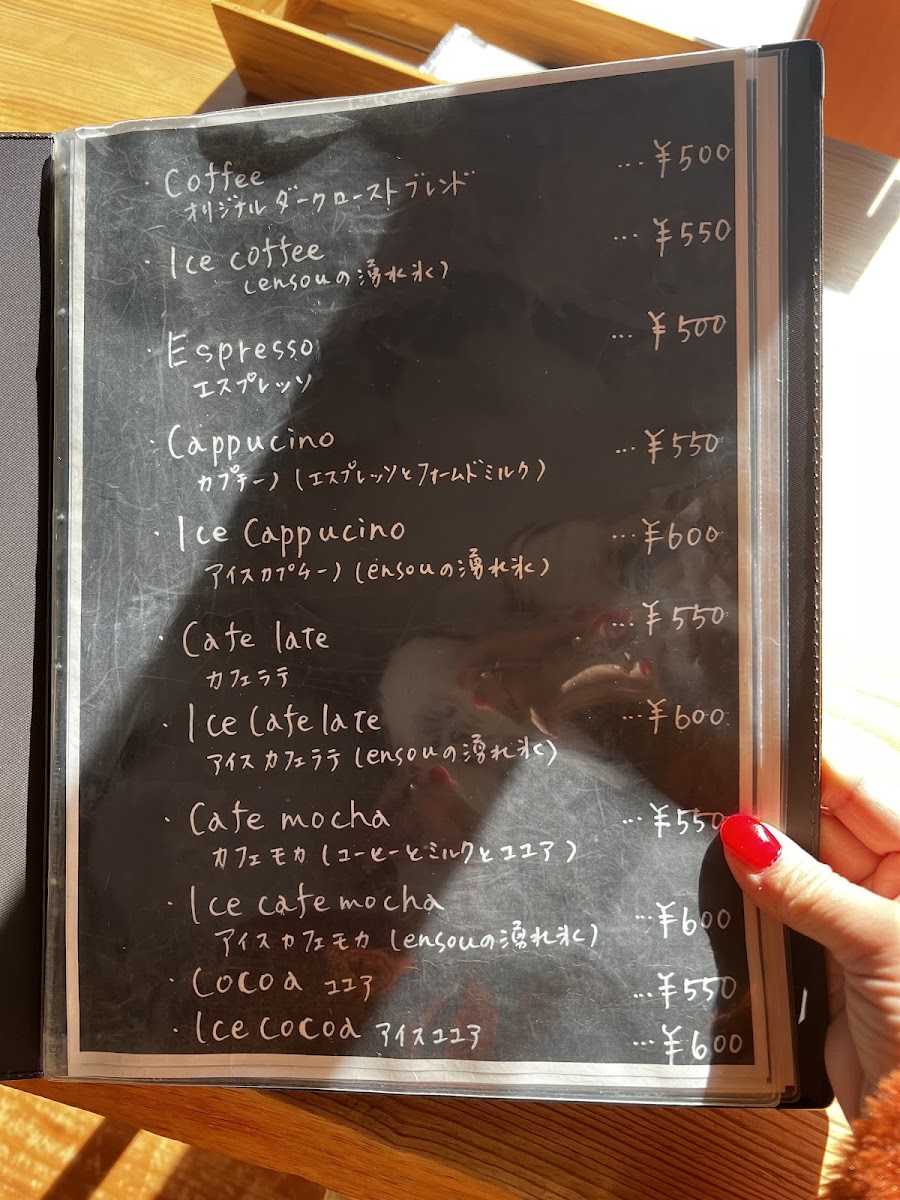 ・Coffee ...¥500
オリジナルダークローストブレンド
・Ice coffee ...¥550
(ensouの湧水氷)
・Espresso ...¥500
エスプレッソ
・Cappucino ...¥550
カプチーノ(エスプレッソとフォームドミルク)
・Ice Cappucino ...¥600
アイスカプチーノ(ensouの湧水氷)
・Cafe late ...¥550
カフェラテ
・Ice Cafe late ...¥600
アイスカフェラテ(ensouの湧水氷)
・Cafe mocha ...¥550
カフェモカ(コーヒーとミルクとココア)
・Ice cafe mocha ...¥600
アイスカフェモカ(ensouの湧水氷)
・Cocoa ココア ...¥550
・Ice cocoa アイスココア ...¥600